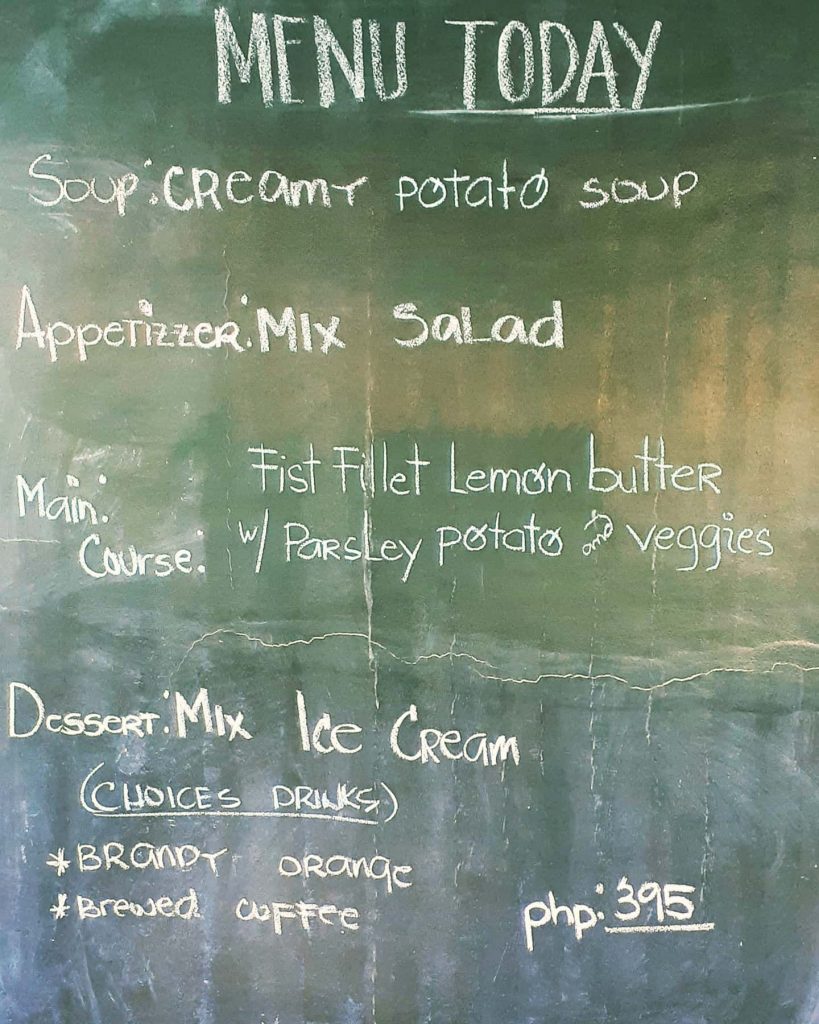 MENU TODAY
Soup: CReamy potato soup
Appetizzer: MIX SaLad
Main: Fist Fillet Lemon butter
Course: w/ Parsley potato and veggies
Dessert: MIX Ice Cream
(CHOICES DRINKS)
*BRANDY ORange
*Brewed COFFee
php: 395